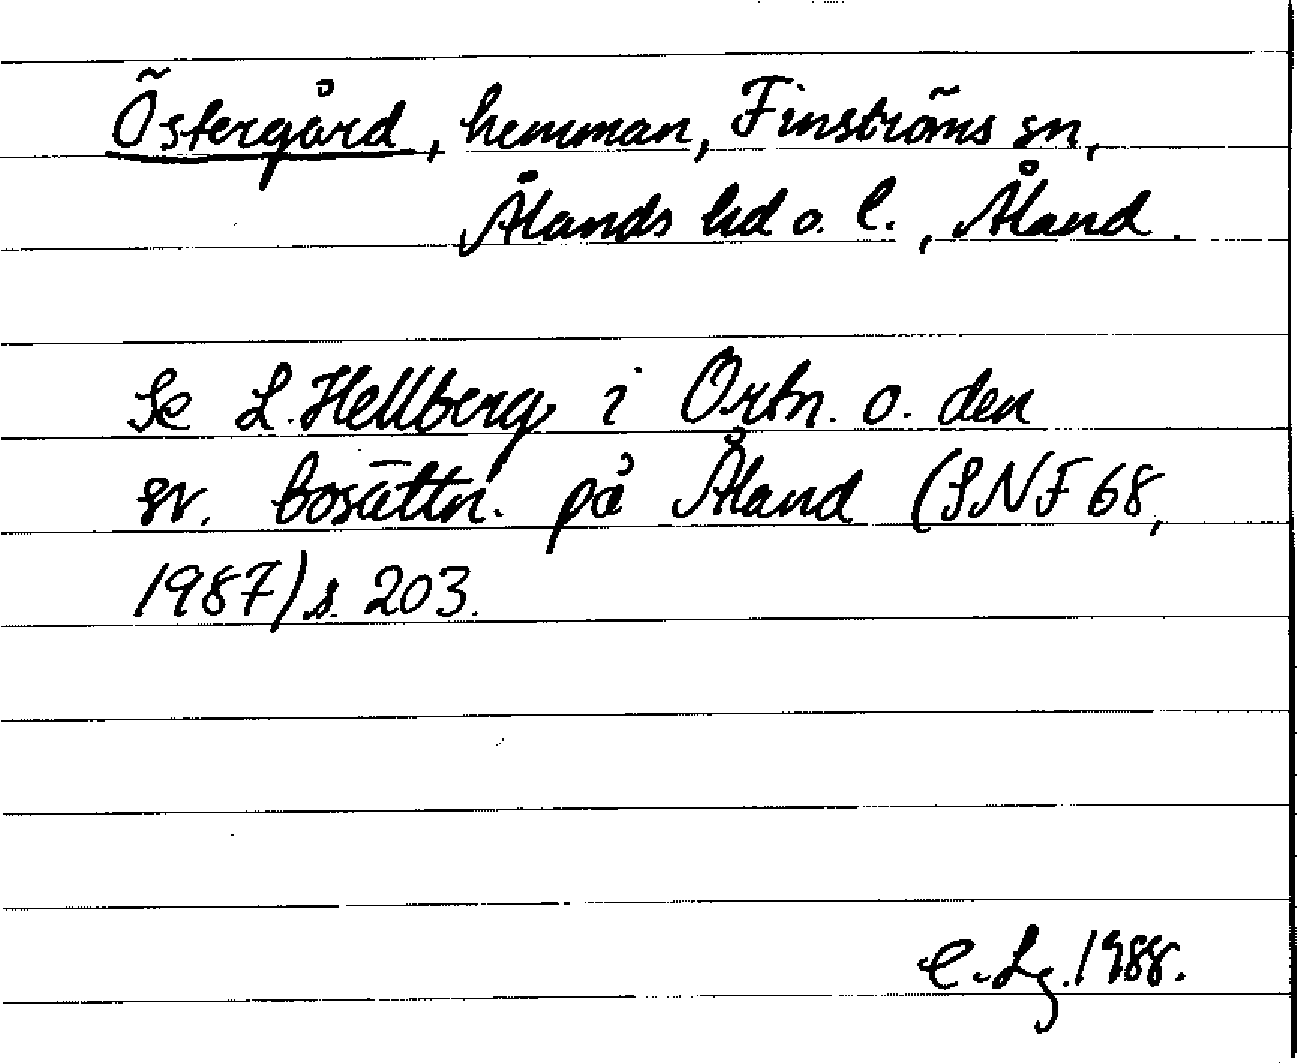 Östergård, hemman, Finströms sn,
Ålands hd o. l., Åland.
Se L. Hellberg i Ortn. o. den
sv. bosättn. på Åland (SNF 68,
1987) s. 203.
C. Lg. 1988.